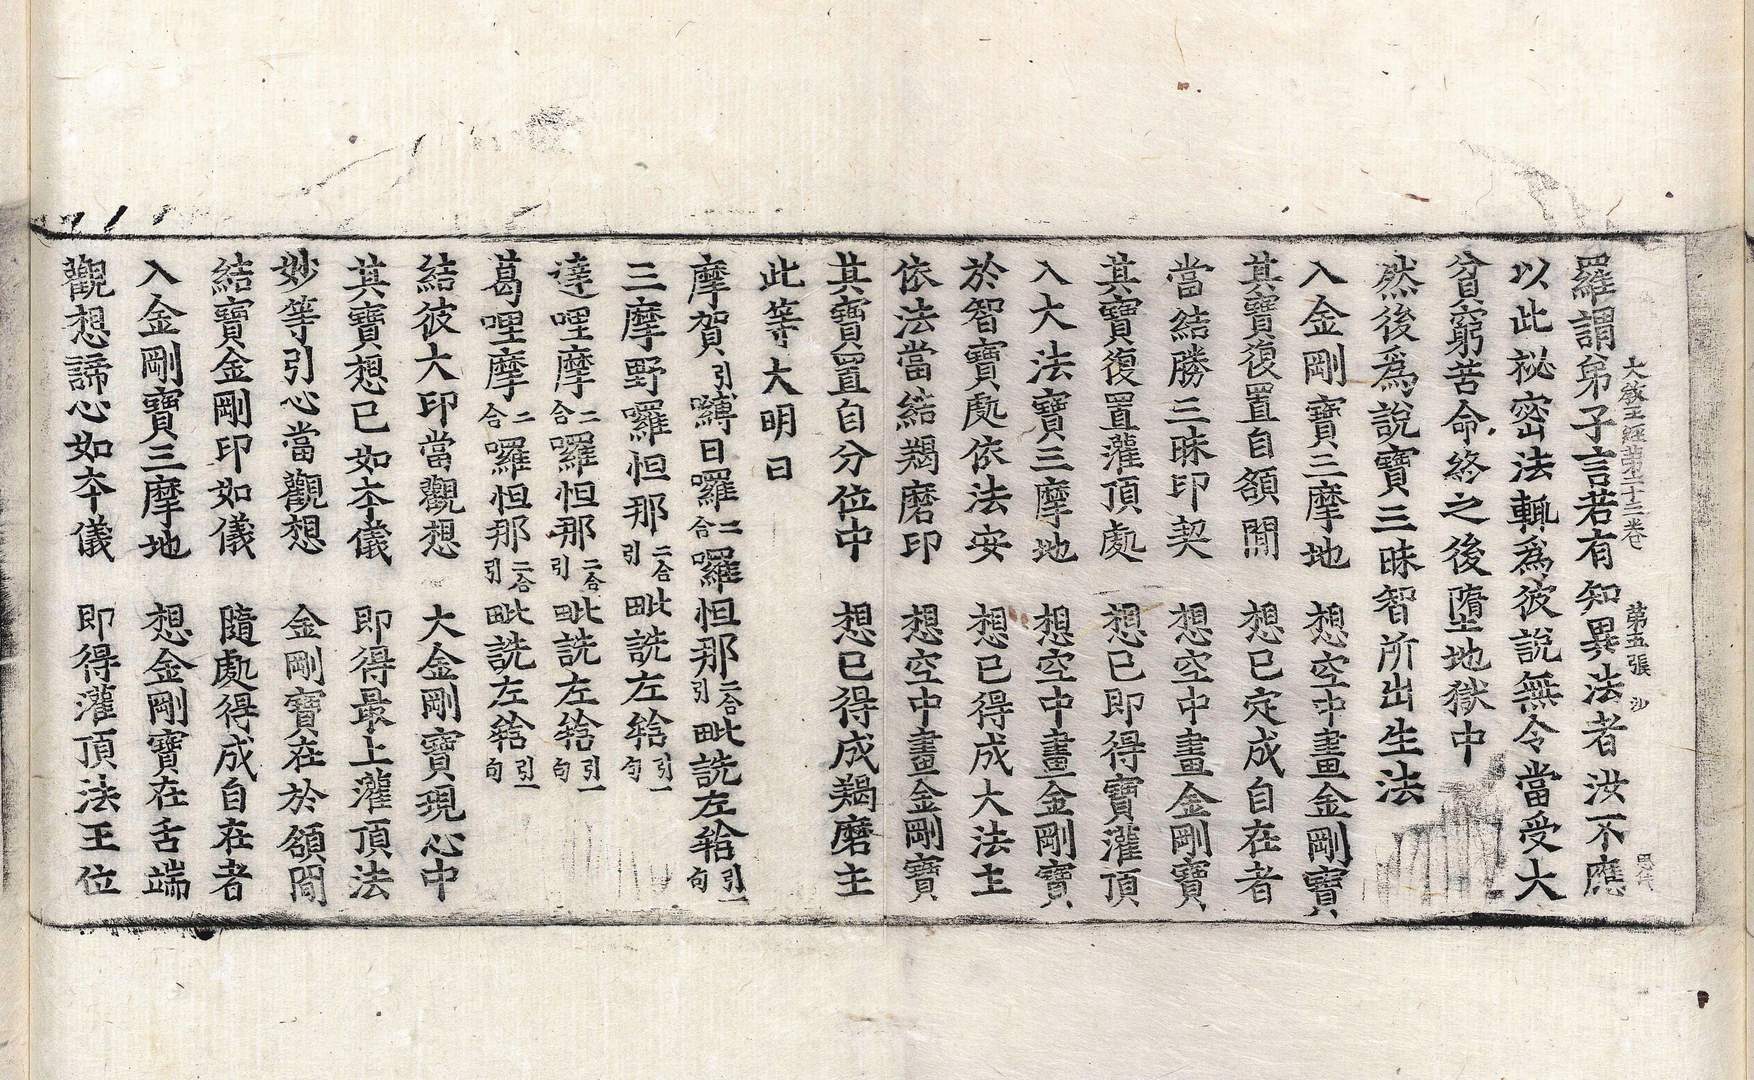 大敎王經第十三卷 第五張 沙
羅謂弟子言若有知異法者汝不應
以此秘密法輒爲彼說無令當受大
貧窮苦命終之後墮地獄中
然後爲說寶三昧智所出生法
入金剛寶三摩地 想空中畫金剛寶
其寶復置自額間 想已定成自在者
當結勝三昧印契 想空中畫金剛寶
其寶復置灌頂處 想已即得寶灌頂
入大法寶三摩地 想空中畫金剛寶
於智寶處依法安 想已得成大法主
依法當結羯磨印 想空中畫金剛寶
其寶置自分位中 想已得成羯磨主
此等大明曰
摩賀引嚩日囉二合囉怛那二合引毗詵左𤙖引一句
三摩野囉怛那二合引毗詵左𤙖引一句
達哩摩二合囉怛那二合引毗詵左𤙖引一句
葛哩摩二合囉怛那二合引毗詵左𤙖引一句
結彼大印當觀想 大金剛寶現心中
其寶想已如本儀 即得最上灌頂法
妙等引心當觀想 金剛寶在於額間
結寶金剛印如儀 隨處得成自在者
入金剛寶三摩地 想金剛寶在舌端
觀想諦心如本儀 即得灌頂法王位